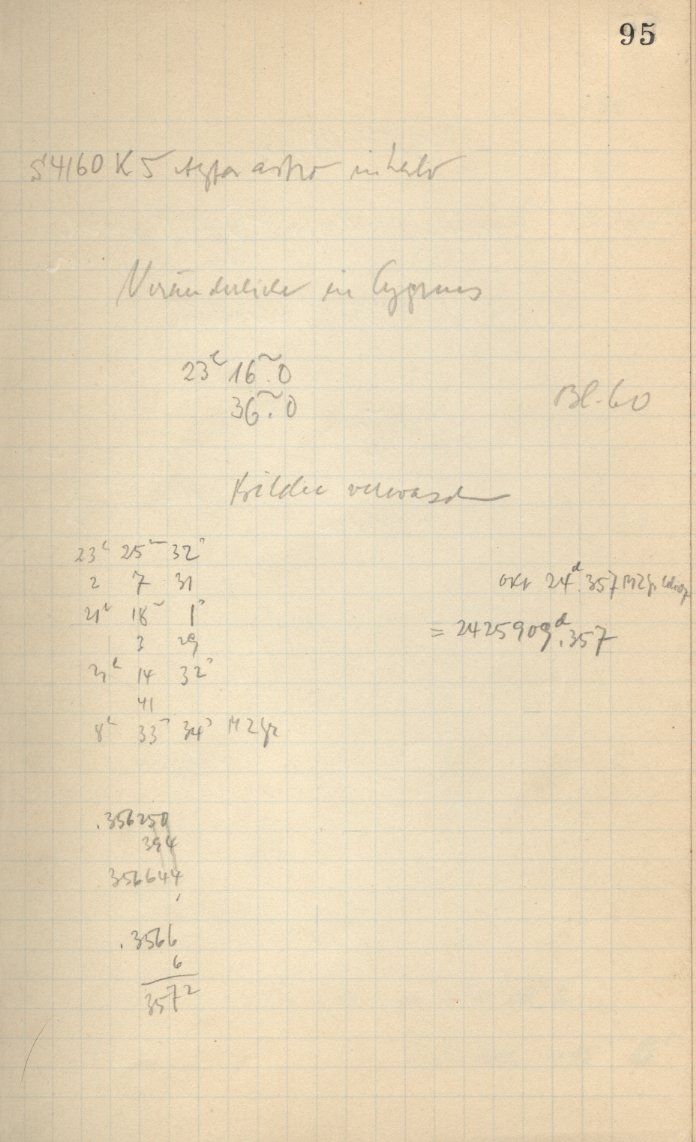 95
S4160 K5
Veränderliche in Cygnus
23h 16m.0
36m.0
Bl. 60
Bilder verwaschen
23h 25m 32s
2 7 31
21h 18m 1s
3 29
21h 14 32s
41
8h 33m 34s MZGr
Okt 24d.357 MZGr
= 2425909d.357
.356250
394
356644
.3566
6
3572